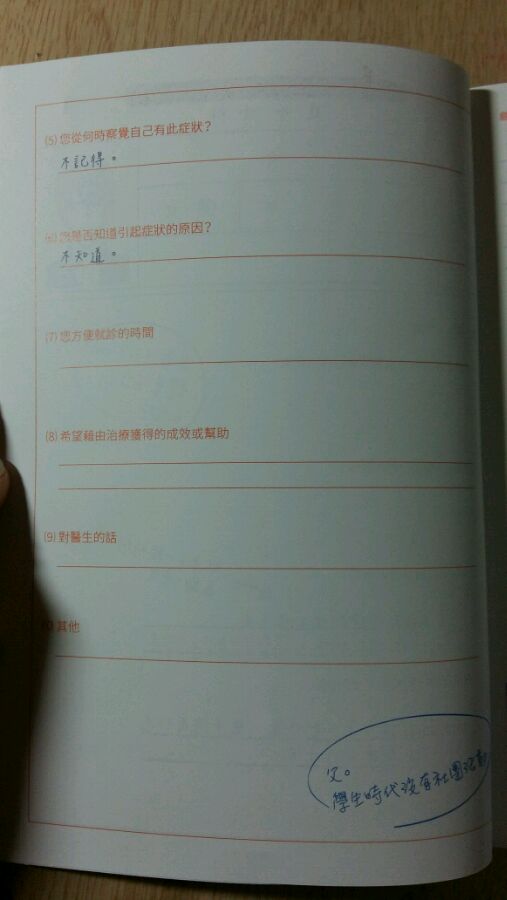 (5) 您從何時察覺自己有此症狀？
不記得。
(6) 您是否知道引起症狀的原因？
不知道。
(7) 您方便就診的時間
(8) 希望藉由治療獲得的成效或幫助
(9) 對醫生的話
其他
父。
學生時代沒有社團活動